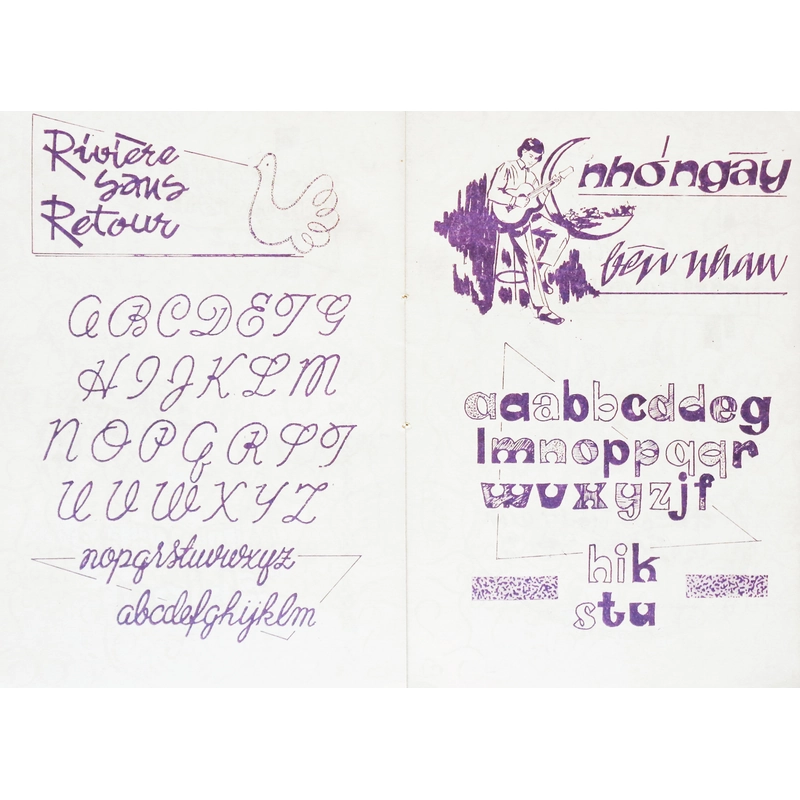 Rivière
sans
Retour
A B C D E F G
H I J K L M
N O P Q R S T
U V W X Y Z
nopqrstuvwxyz
abcdefghijklm
nhớ ngày
bên nhau
aaabbbcdddeg
lmmnoppqqr
wvxyzjf
hik
stu